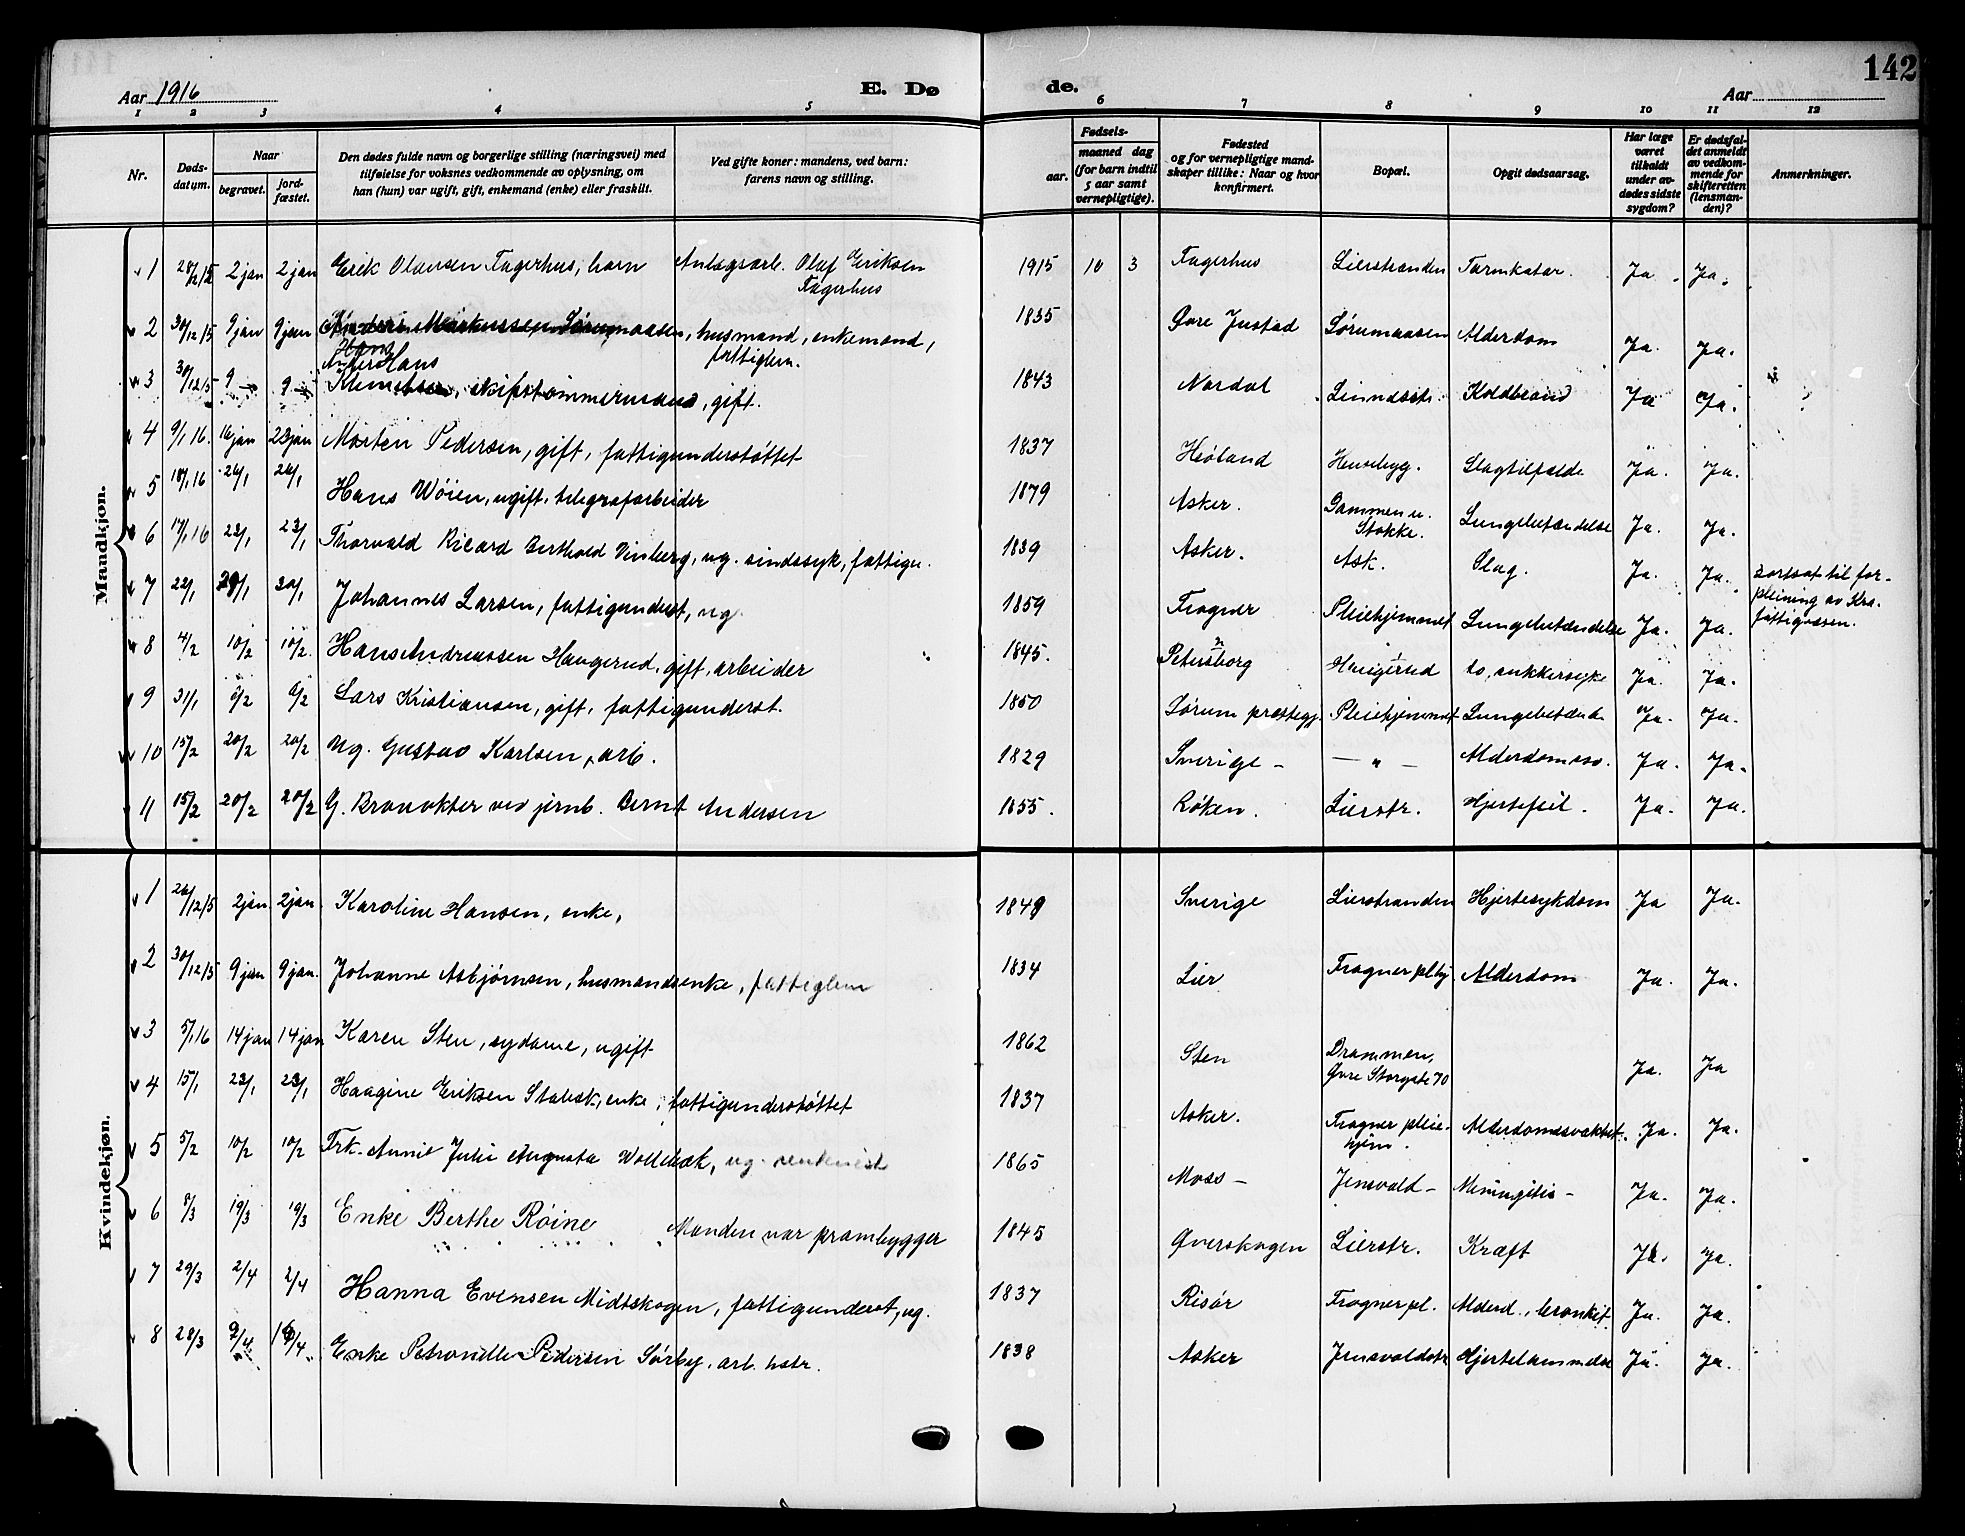 142
Aar 1916
E. Dø
de.
Aar
1 2 3 4 5 6 7 8 9 10 11 12
Nr.
Døds-
datum.
Naar
begravet.
jord-
fæstet.
Den dødes fulde navn og borgerlige stilling (næringsvei) med
tilføielse for voksnes vedkommende av oplysning, om
han (hun) var ugift, gift, enkemand (enke) eller fraskilt.
Ved gifte koner: mandens, ved barn:
farens navn og stilling.
Fødsels-
aar.
maaned dag
(for barn indtil
5 aar samt
vernepligtige).
Fødested
og for vernepligtige mand-
skaper tillike: Naar og hvor
konfirmert.
Bopæl.
Opgit dødsaarsag.
Har læge
været
tilkaldt
under av-
dødes sidste
sygdom?
Er dødsfal-
det anmeldt
av vedkom-
mende for
skifteretten
(lensman-
den)?
Anmerkninger.
Mandkjøn.
1 28/12 15 2 jan 2 jan Erik Olausen Fagerhus, barn Anlægsarb. Olaf Eriksen 1915 10 3 Fagerhus Lierstranden Tarmkatar. Ja. Ja.
Fagerhus
2 30/12 15 9 jan 9 jan Anders Markussen Sørumaasen, husmand, enkemand, 1835 Øvre Justad Sørumaasen Alderdom Ja. Ja.
Hans fattiglem.
Hans
3 30/12 15 9 — 9 — Klemetsen, skipstømmermand, gift. 1843 Nordal Koldbrand Ja Ja.
4 9/1 16. 16 jan 23 jan Morten Pedersen, gift, fattigunderstøttet 1837 Høland Slagtilfælde Ja. Ja.
5 18/1 16 26/1 26/1 Hans Wöien, ugift, telegrafarbeider 1879 Asker. Gammen u. Lungebetændelse Ja. Ja.
Stokke.
6 17/1 16 23/1 23/1 Thorvald Ricard Berthold Vinberg, ug. sindssyk, fattigu. 1839 Asker. Ask. Slag. Ja. Ja. Bortsat til for-
pleining av Kra.
fattigvæsen.
7 22/1 30/1 Johannes Larsen, fattigunderst, ug 1859 Frogner Pleiehjemmet Lungebetændelse Ja. Ja.
8 4/2 10/2 10/2. Hans Andreassen Haugerud, gift, arbeider 1845. Petersborg Haugerud do, sukkersyke Ja. Ja.
9 31/1 6/2 6/2 Lars Kristiansen, gift, fattigunderst. 1850 Sørum præstegj. Pleiehjemmet Lungebetænd. Ja. Ja.
10 15/2 20/2 20/2 Ug. Gustav Karlsen, arb. 1829 Sverige - — " — Alderdomssv. Ja. Ja.
11 15/2 20/2 20/2 G. Brovokter ved jernb. Bernt Andersen 1855. Røken. Lierstr. Hjertefeil. Ja. Ja.
Kvindekjøn.
1 26/12 15 2 jan. 2 jan. Karoline Hansen, enke, 1849 Sverige Lierstranden Hjertesykdom Ja Ja.
2 30/12 15 9 jan 9 jan. Johanne Asbjørnsen, husmandsenke, fattiglem 1834 Lier Frogner plhj Alderdom Ja. Ja.
3 5/1 16 14 jan 14 jan Karen Sten, sydame, ugift 1862 Sten Drammen, Ja. Ja
Øvre Storgate 70
4 15/1 23/1 23/1 Haagine Eriksen Stabæk, enke, fattigunderstøttet 1837 Asker. Frogner pleie- Alderdomssvækket. Ja. Ja.
hjem.
5 5/2 10/2 10/2 Frk. Annie Julie Augusta Wollebæk, ug. 1865 Moss - Jensvold - Meningitis - Ja. Ja.
6 8/3 19/3 19/3 Enke Berthe Röine Manden var prambygger 1845 Øverskogen Lierstr. Kræft Ja. Ja.
7 29/3 2/4 2/4 Hanna Evensen Midtskogen, fattigunderst, ug. 1837 Risør Frogner pl. Alderd., bronkit. Ja. Ja.
8 28/3 9/4 Enke Petronelle Pedersen Sørby, arb. hstr. 1838 Asker Jensvoldstr Hjertelammelse Ja. Ja.